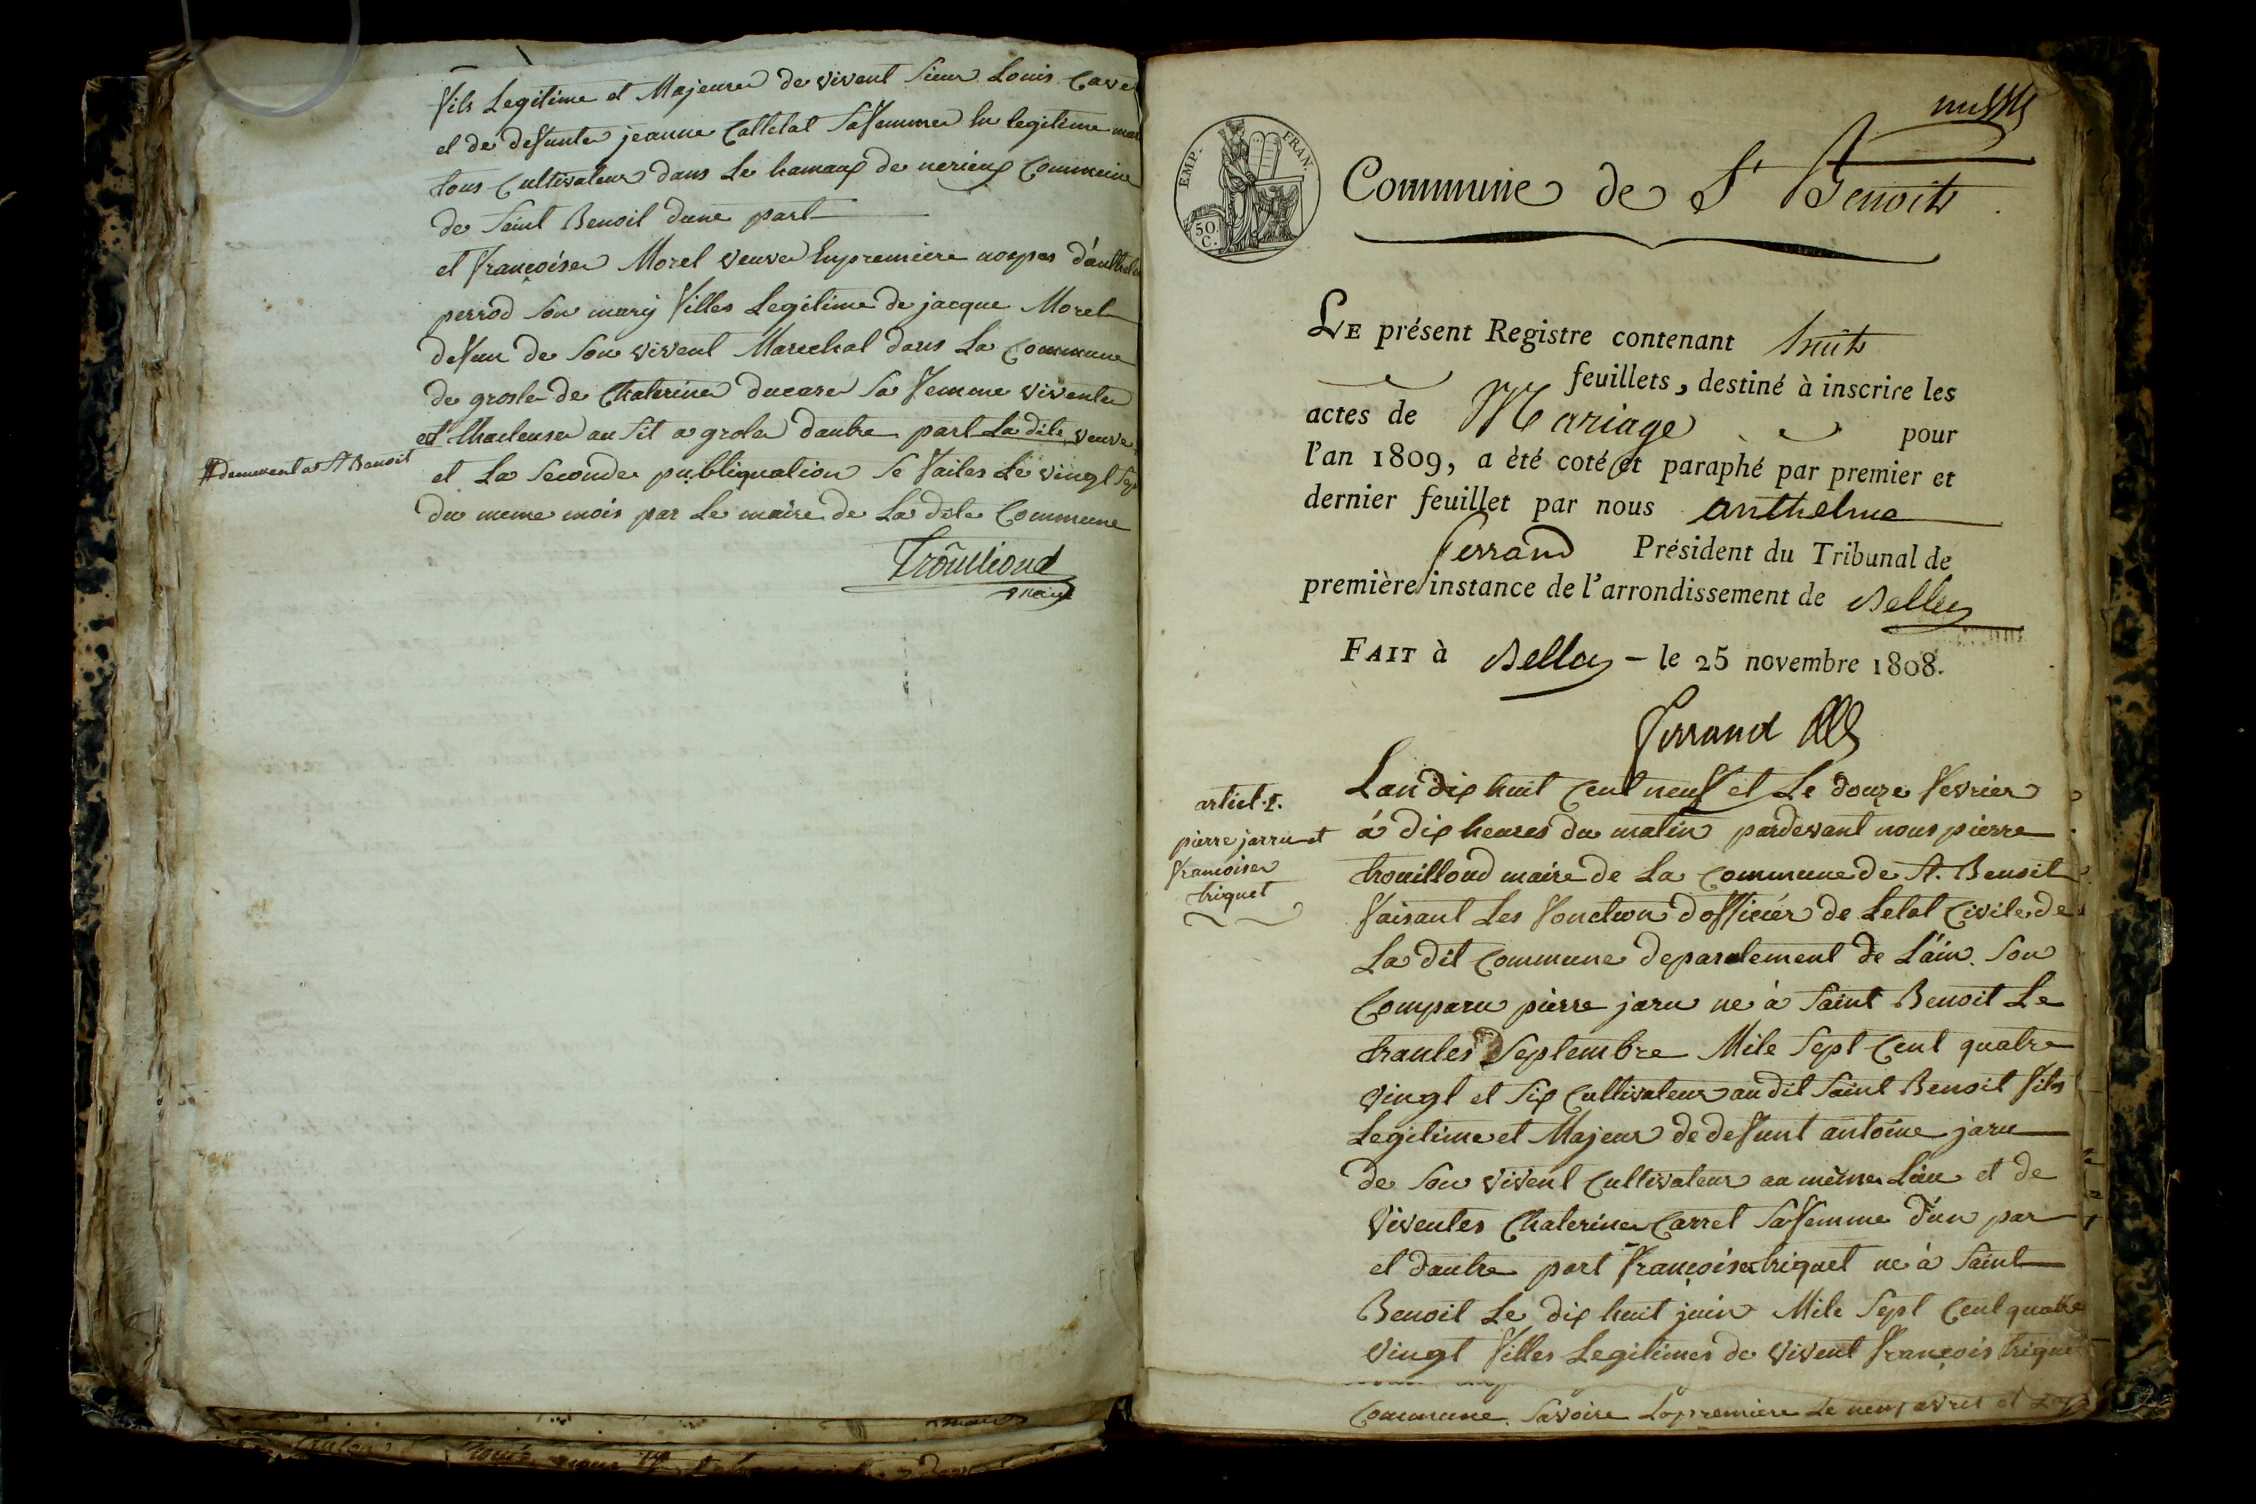 fils Legitime et Majeure de vivent Sieur Louis Cave
et de defunte jeanne Calletat Sa femme En legitime mar
tous Cultivateur dans Le hamaux de nerieux Commune
de Saint Benoit dune part
et françoise Morel veuve En premiere nospes d'anthel
perrod Son mary filles Legitime de jacque Morel
defun de Son vivent Marechal dans La Commune
de grosle de Chaterine ducare Sa femme vivente
et au dit a grole dautre part La dite veuve
# demeurent a St Benoit
et La Seconde publiquation Se faites Le vingt Sep
du meme mois par Le maire de La dite Commune
Trouilloud
maire
EMP. FRAN.
50
C.
Commune de St Benoit
LE présent Registre contenant huit
feuillets, destiné à inscrire les
actes de Mariage pour
l'an 1809, a été coté et paraphé par premier et
dernier feuillet par nous anthelme
ferrand Président du Tribunal de
première instance de l'arrondissement de Belley
FAIT à Belley - le 25 novembre 1808.
ferrand
articl. 1.
pierre jarru et
francoise
triquet
Lan dix huit Cent neuf et Le douze fevrier
à dix heures du matin pardevant nous pierre
trouilloud maire de La Commune de St. Benoit
faisant Les fonction dofficiér de Letat Civile de
La dit Commune deparatement de L'ain. Son
Comparu pierre jaru ne à Saint Benoit Le
trantes Septembre Mile Sept Cent quatre
vingt et Six Cultivateur au dit Saint Benoit fils
Legitime et Majeur de defunt antoine jaru
de Son vivent Cultivateur au même Lieu et de
viventes Chaterine Carret Sa femme d'un par
et dautre part françoise triquet ne à Saint
Benoit Le dix huit juin Mile Sept Cent quatre
vingt filles Legitimes de vivent françois trique
Commune. Savoire La premiere Le neuf avril et La